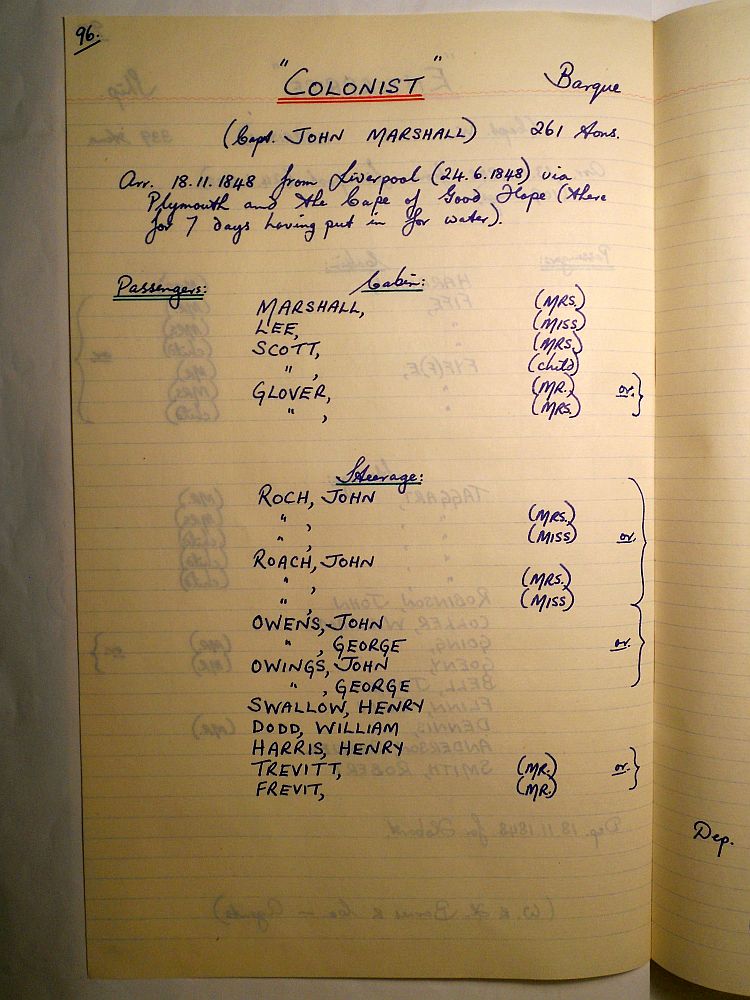 96.
"COLONIST" Barque
(Capt. JOHN MARSHALL) 261 tons.
Arr. 18.11.1848 from Liverpool (24.6.1848) via
Plymouth and the Cape of Good Hope (there
for 7 days having put in for water).
Passengers: Cabin:
MARSHALL, (MRS.)
LEE, (MISS)
SCOTT, (MRS.)
" , (child)
GLOVER, (MR.) or.
" , (MRS.)
Steerage:
ROCH, JOHN
" , (MRS.)
" , (MISS) or.
ROACH, JOHN
" , (MRS.)
" , (MISS)
OWENS, JOHN
" , GEORGE or.
OWINGS, JOHN
" , GEORGE
SWALLOW, HENRY
DODD, WILLIAM
HARRIS, HENRY
TREVITT, (MR.) or.
FREVIT, (MR.)
Dep.